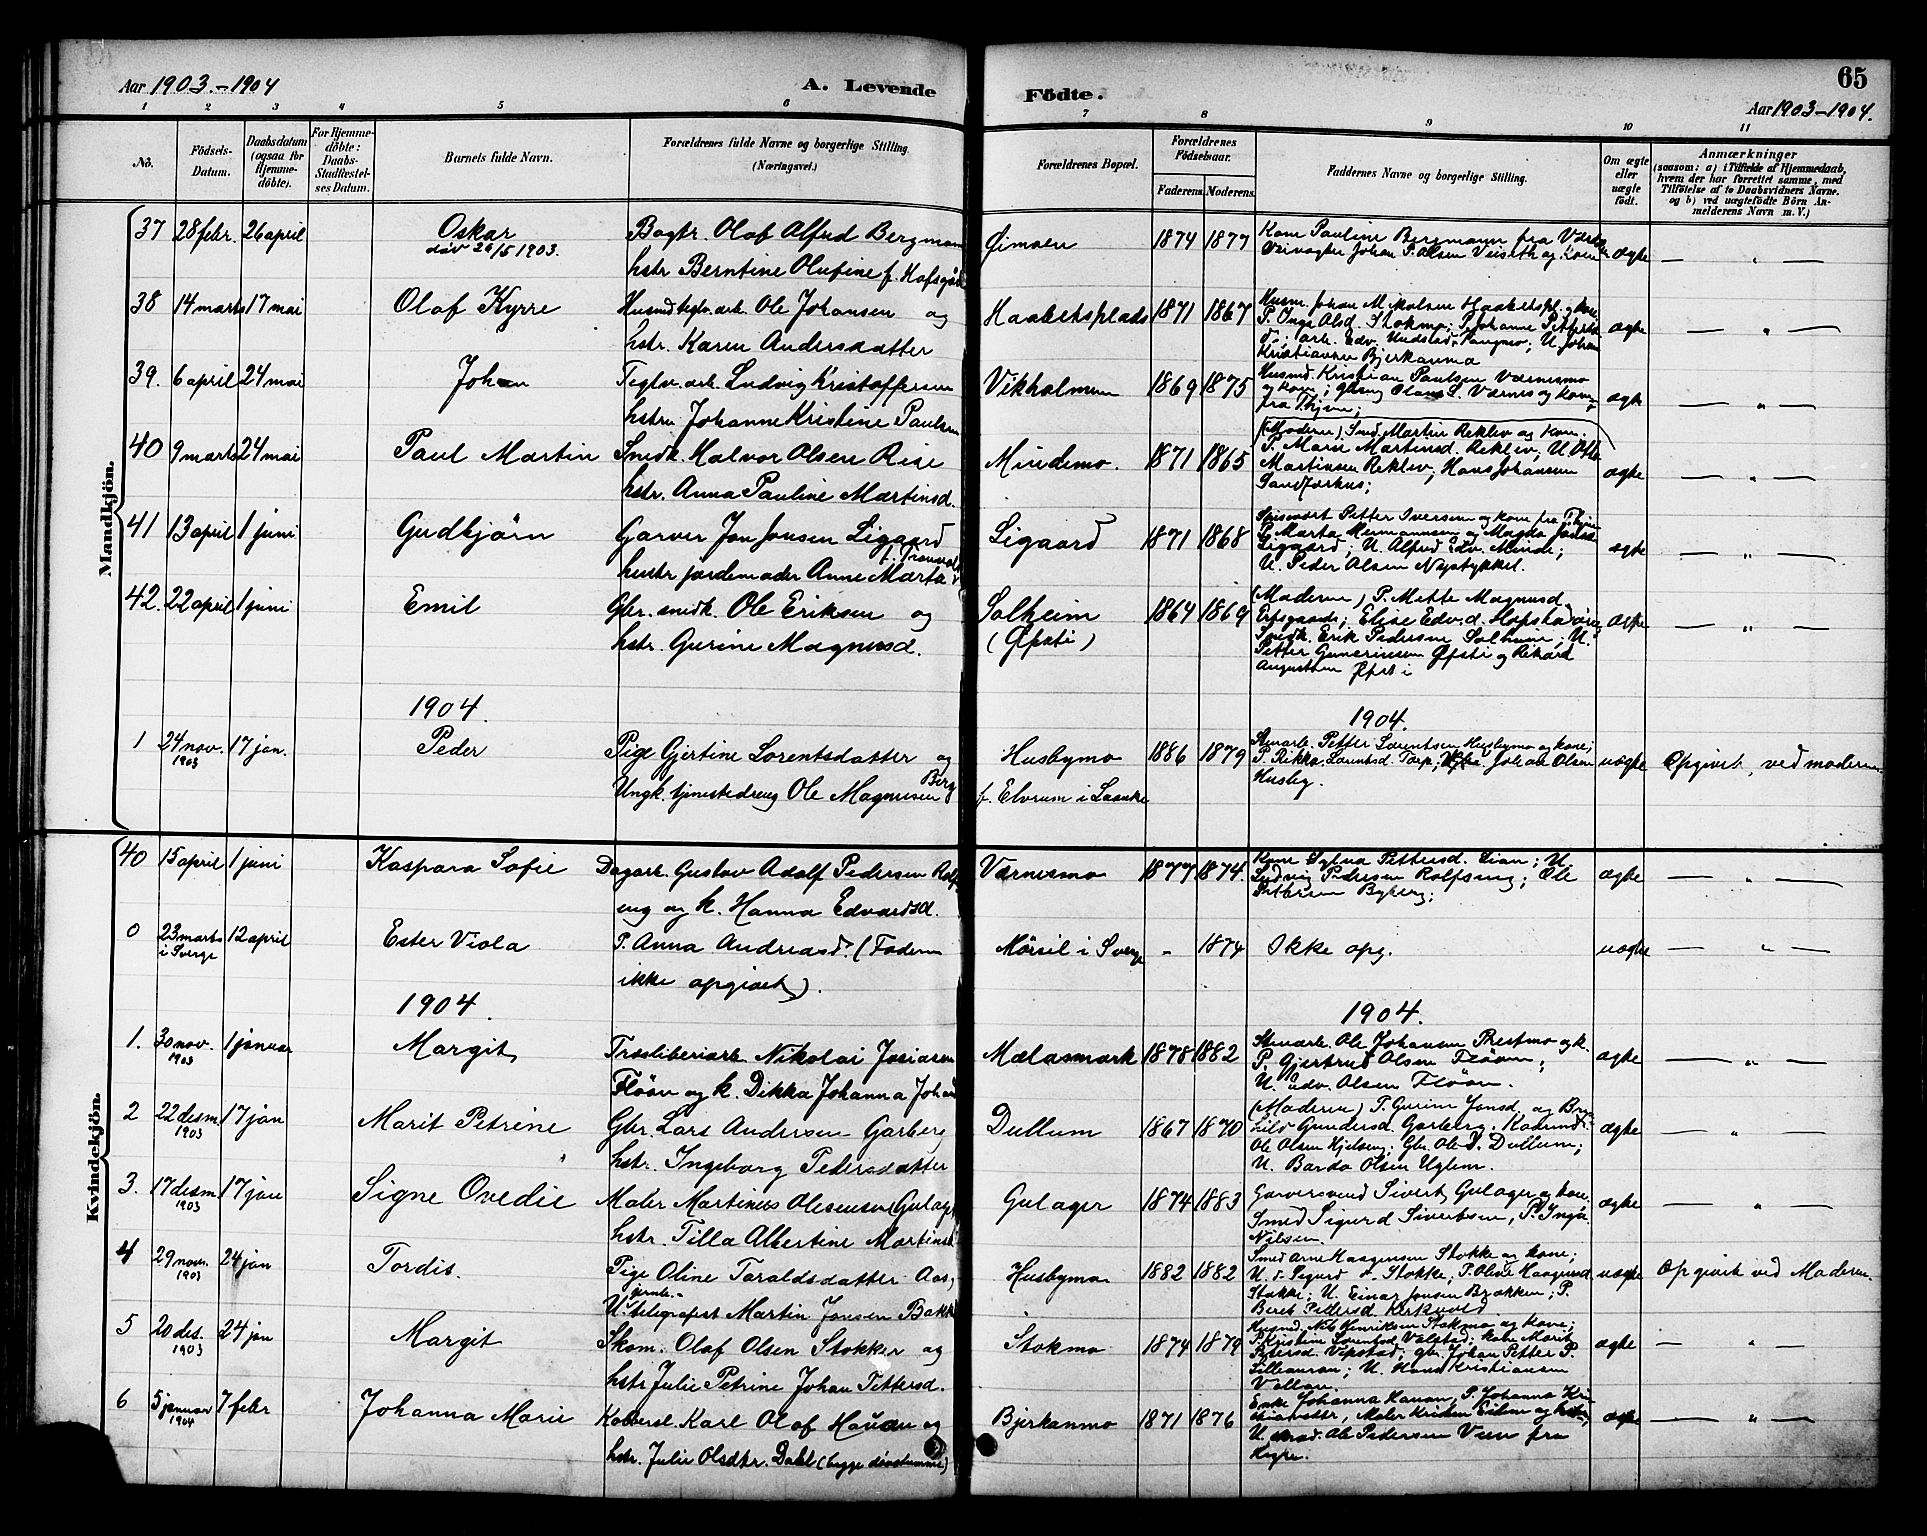 65
Aar 1903.-1904
A. Levende
Födte.
Aar 1903-1904.
1 2 3 4 5 6 7 8 9 10 11
No.
Födsels-Datum.
Daabsdatum (ogsaa for Hjemme-döbte).
For Hjemme-döbte: Daabs-Stadfæstel-ses Datum.
Barnets fulde Navn.
Forældrenes fulde Navne og borgerlige Stilling. (Næringsvei.)
Forældrenes Bopæl.
Forældrenes Födselsaar.
Faderens. Moderens.
Faddernes Navne og borgerlige Stilling.
Om ægte eller uægte födt.
Anmærkninger
(saasom: a) i Tilfælde af Hjemmedaab, hvem der har forrettet samme, med Tilföielse af to Daabsvidners Navne. og b) ved uægtefödte Börn An-melderens Navn m. V.)
Mandkjön.
37 28 febr. 26 april Oskar Bagtr. Olaf Alfred Bergmann Øimoen 1874 1877 Kone Pauline Bergmann fra
döv 26/5 1903. hstr Berntine Olufine f. Hofsgård Johan P. Olsen og kone ægte — " —
38 14 marts 17 mai Olaf Kyrre Husmd teglv. arb. Ole Johansen og Haabetsplads 1871 1867 Husm. Johan M.
hstr. Karen Andersdatter P. Inga Olsd. Stokmo; P. Johanne ægte — " —
arb. Edv. U. Johan
Kristiansen Bjerkanmo
39. 6 april 24 mai Johan Teglv. arb. Ludvig Kristoffersen Vikholmen 1869 1875 Husmd. Kristian Paulsen Værnesmo
hstru Johanne Kristine Paulsen og kone; Værnes og kone ægte — " —
fra Thjem;
40 9 marts 24 mai Paul Martin Smdk. Halvor Olsen Rise Mindemo. 1871 1865 (Moderen) Smed Martin Reklev og kone.
hstr. Anna Pauline Martinsd. P. Marie Martinsd. Reklev, U. Otto
Martinsen Reklev, Hans Johansen ægte — " —
Sandfærhus;
41 13 april 1 juni Gudbjörn Garver Jon Jonsen Ligaard Ligaard 1871 1868 Petter Iversen og kone fra
hustr jordemoder Anne Marta P. Marta Hermannsen og Magda
Ligaard; U. Alfred Edv. Minde; ægte — " —
U. Peder Olsen Nystykket.
42. 22 april 1 juni Emil Gbr. smdk. Ole Eriksen og Solheim 1864 1869 (Moderen) P. Mette Magnusd.
hstr. Gurine Magnusd. (Øfsti) Elise Edv.d. ægte — " —
Smdk. Erik Pedersen Solheim; U.
Petter Gunerinsen Øfsti og Rikard
Augustsen Øfsti
1904. 1904.
1 24 nov. 1903 17 jan. Peder Pige Gjertine Lorentsdatter og Husbymo 1886 1879 Stenarb. Petter Lorentsen Husbymo og kone; uægte Opgivet ved moderen
Ungk. tjenestedreng Ole Magnussen Berg f. Elvrum i Laanke P. Rikka Lorentsd. Torp; Johan Olsen
Husby.
Kvindekjön.
40 15 april 1 juni Kaspara Sofie Dagarb. Gustav Adolf Pedersen Rolfs Værnesmo 1877 1874. Kone Pettersd. Lian; U.
eng og k. Hanna Edvardsd. Ludvig Pedersen Rolfseng; Ole ægte — " —
Pettersen Byberg;
0 23 marts i Sverge 12 april Ester Viola P. Anna Andreasd. (Faderen Mörsil i Sverge - 1874 Ikke opg. uægte — " —
ikke opgivet).
1904. 1904.
1. 30 nov. 1903 1 januar Margit Træsliberiarb. Nikolai Josiasen Mælasmark 1878 1882 Stenarb. Ole Johansen Prestmo og k.
Flöan og k. Dikka Johanna Johand P. Gjertrud Olsen Flöan; ægte — " —
U. Edv. Olsen Flöan.
2 22 desm. 1903 17 jan Marit Petrine Gbr. Lars Andersen Garberg Dullum 1867 1870 (Moderen) P. Gurine Jonsd. og
hstr. Ingeborg Pedersdatter Gundersd. Garberg. ægte — " —
Ole Olsen Hjelseng; Gbr. Ole P. Dullum;
U. Bardo Olsen Uglem.
3. 17 desm 1903 17 jan Signe Ovedie Maler Martinus Olesensen (Gulager) Gulager 1874 1883 Garversvend Sivert Gulager og kone. ægte — " —
hstr. Tilla Albertine Martinsd. Smed Sigurd Sivertsen, P. Inga
Nilsen.
4 29 nov. 1903 24 jan Tordis. Pige Oline Toraldsdatter Aas, Husbymo 1882 1882 Smed Arne Haagensen Stokke og kone; uægte Opgivet ved Moderen.
U. jernb. telegrafist Martin Jonsen Bakk U. Sigurd Stokke; P. Oline Haagensd.
Stokke; U. Einar Jonsen Brækken; P.
Beret Pettersd.
5 20 des. 1903 24 jan Margit Skom. Olaf Olsen Stokker og Stokmo 1874 1879 Husmd. Nils Henriksen Stokmo og kone;
hstr Julie Petrine Johan Pettersd. P. Kristine Lorentsd. Valstad; kone Marit ægte — " —
gbr. Johan Petter P.
U. Hans Kristiansen
6 5 januar 1904 7 febr Johanna Marie Karl Olaf Hauan og Bjerkanmo 1871 1876 Enke Johanna Hauan, P. Johanna
hstr. Julie Olsdtr. Dahl (begge dövstumme) Maler ægte — " —
U. Ole Pedersen Vien fra
Hegre.